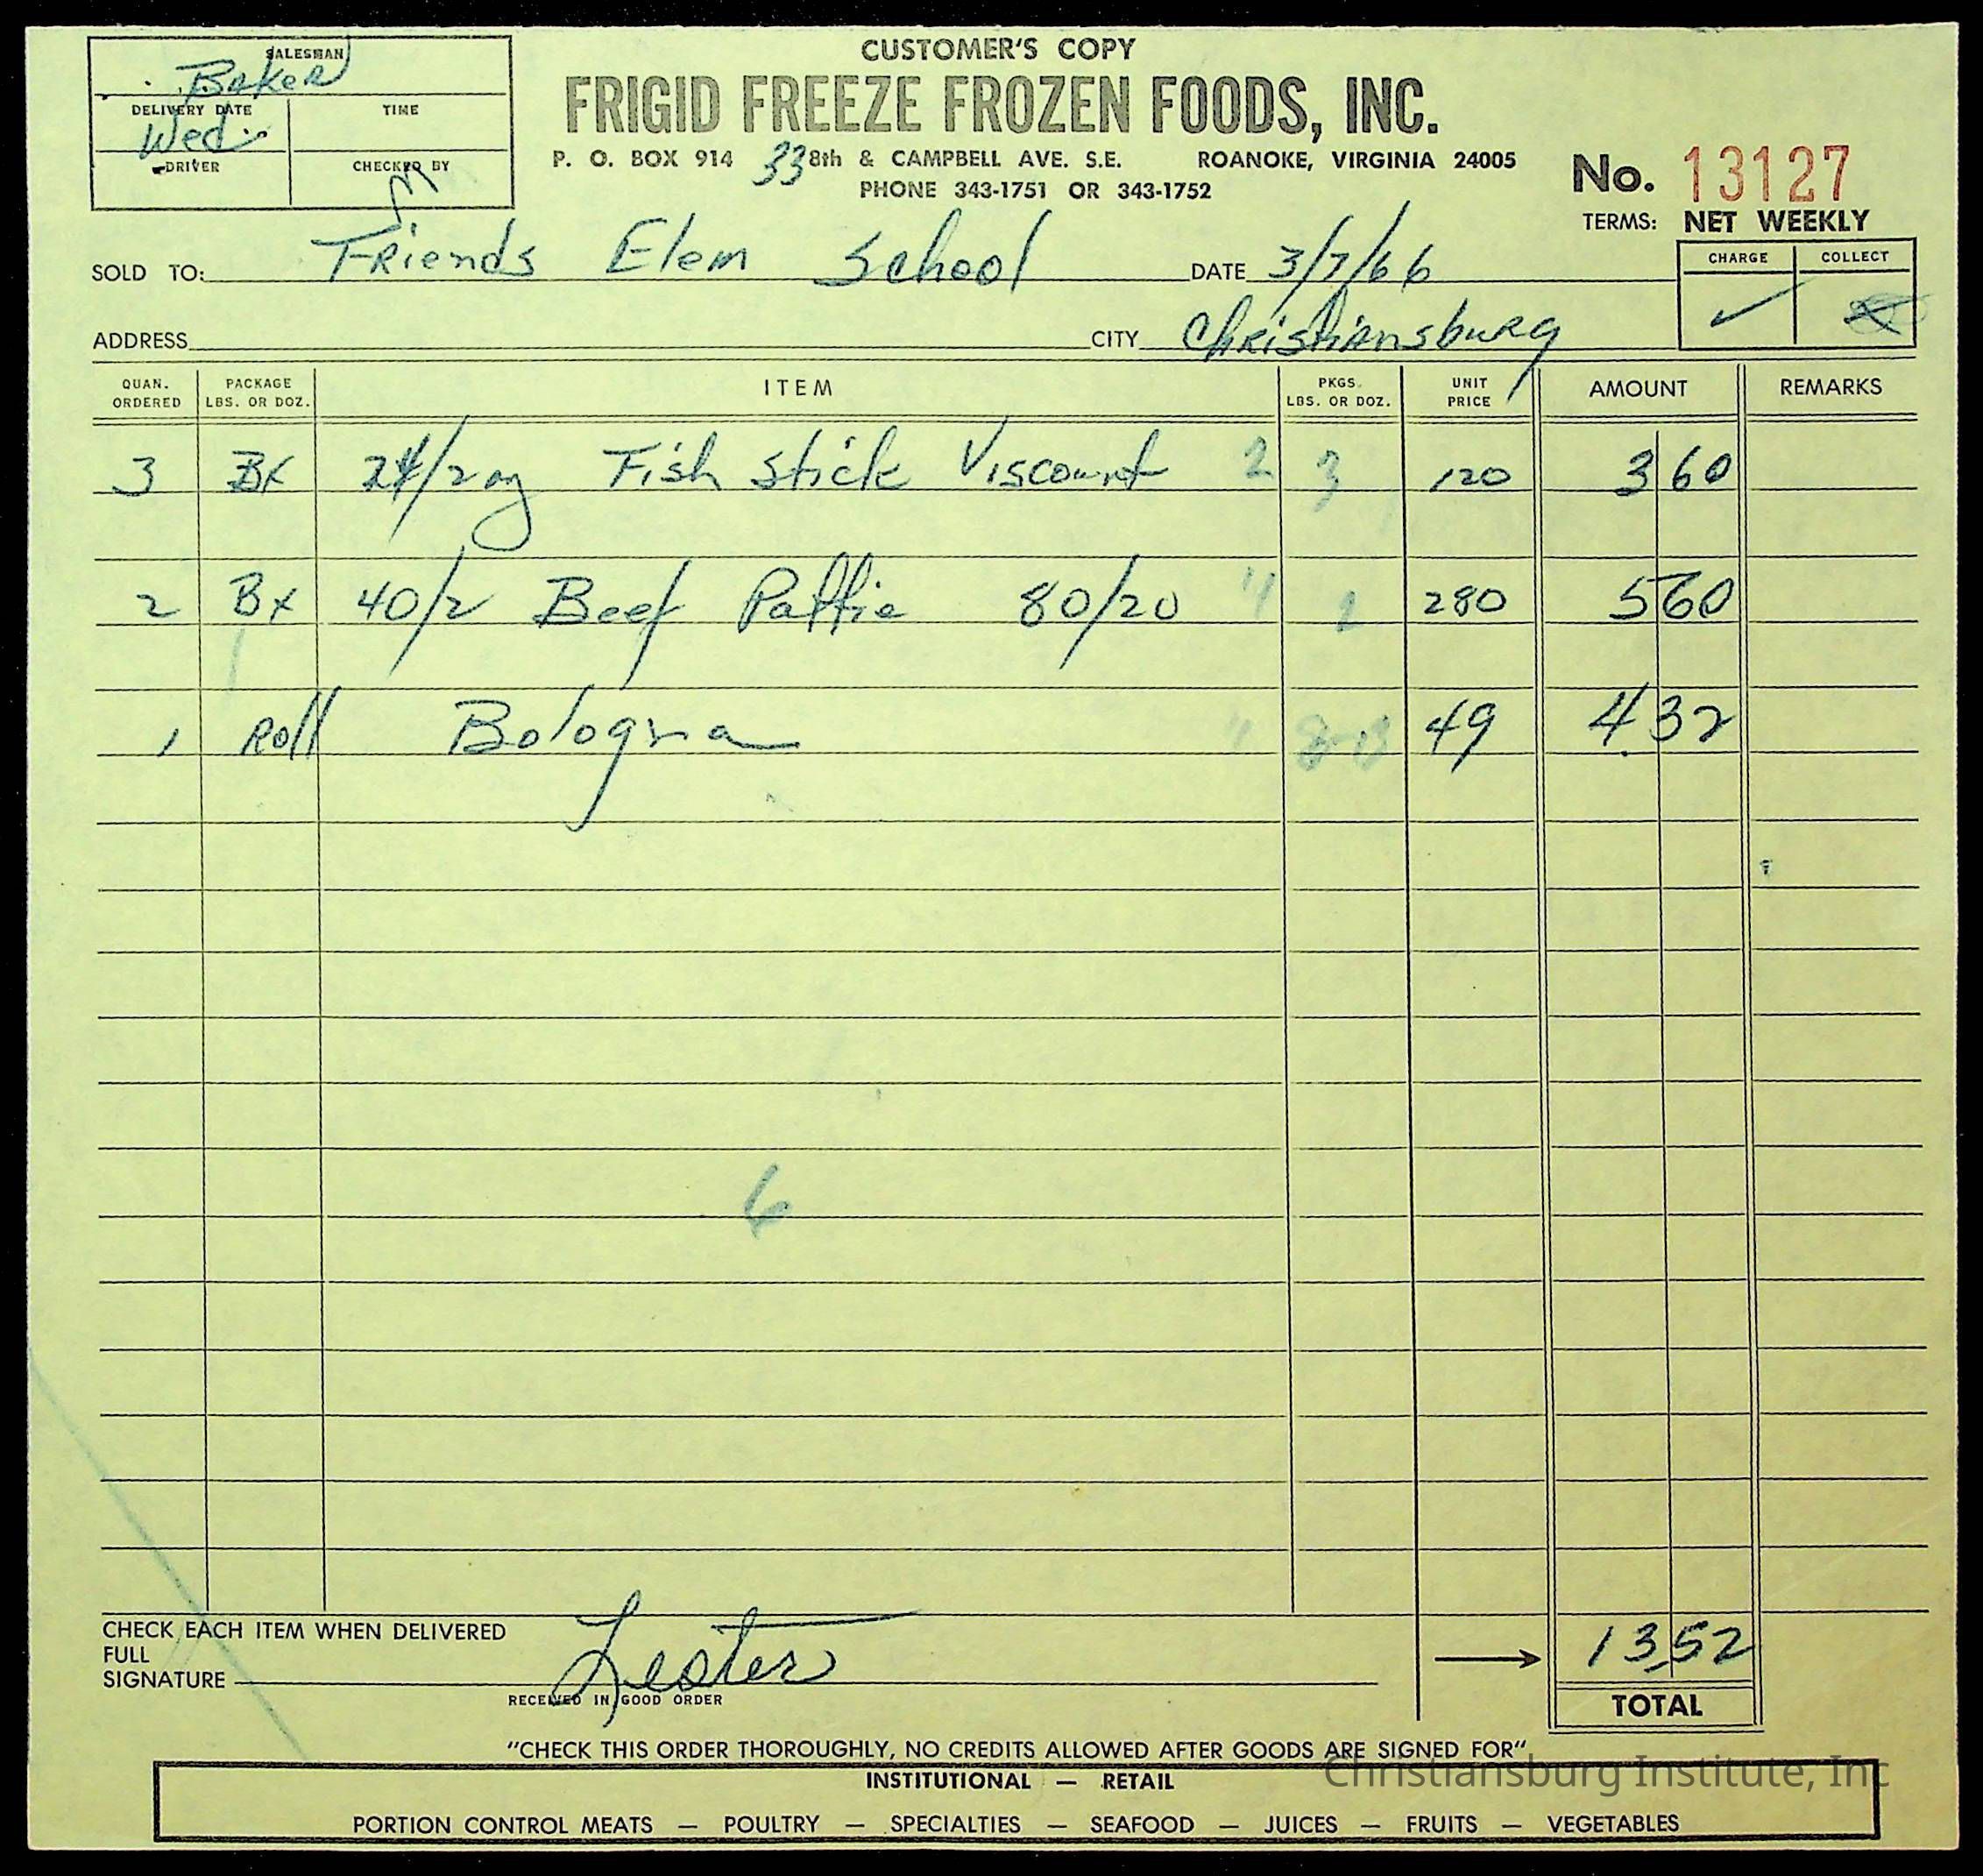 CUSTOMER'S COPY
FRIGID FREEZE FROZEN FOODS, INC.
P. O. BOX 914 33 8th & CAMPBELL AVE. S.E. ROANOKE, VIRGINIA 24005
PHONE 343-1751 OR 343-1752
SALESMAN
Baker
DELIVERY DATE TIME
Wed
DRIVER CHECKED BY
No. 13127
TERMS: NET WEEKLY
CHARGE COLLECT
SOLD TO: Friends Elem School DATE 3/7/66
ADDRESS CITY Christiansburg
QUAN. ORDERED PACKAGE LBS. OR DOZ. ITEM PKGS. LBS. OR DOZ. UNIT PRICE AMOUNT REMARKS
3 Bx 24/2 oz Fish Stick Viscount 2 3 120 3 60
2 Bx 40/2 Beef Pattie 80/20 " 2 280 5 60
1 Roll Bologna " 8-13 49 4.32
6
CHECK EACH ITEM WHEN DELIVERED
FULL
SIGNATURE Lester
RECEIVED IN GOOD ORDER
13.52
TOTAL
"CHECK THIS ORDER THOROUGHLY, NO CREDITS ALLOWED AFTER GOODS ARE SIGNED FOR"
Christiansburg Institute, Inc
INSTITUTIONAL — RETAIL
PORTION CONTROL MEATS — POULTRY — SPECIALTIES — SEAFOOD — JUICES — FRUITS — VEGETABLES